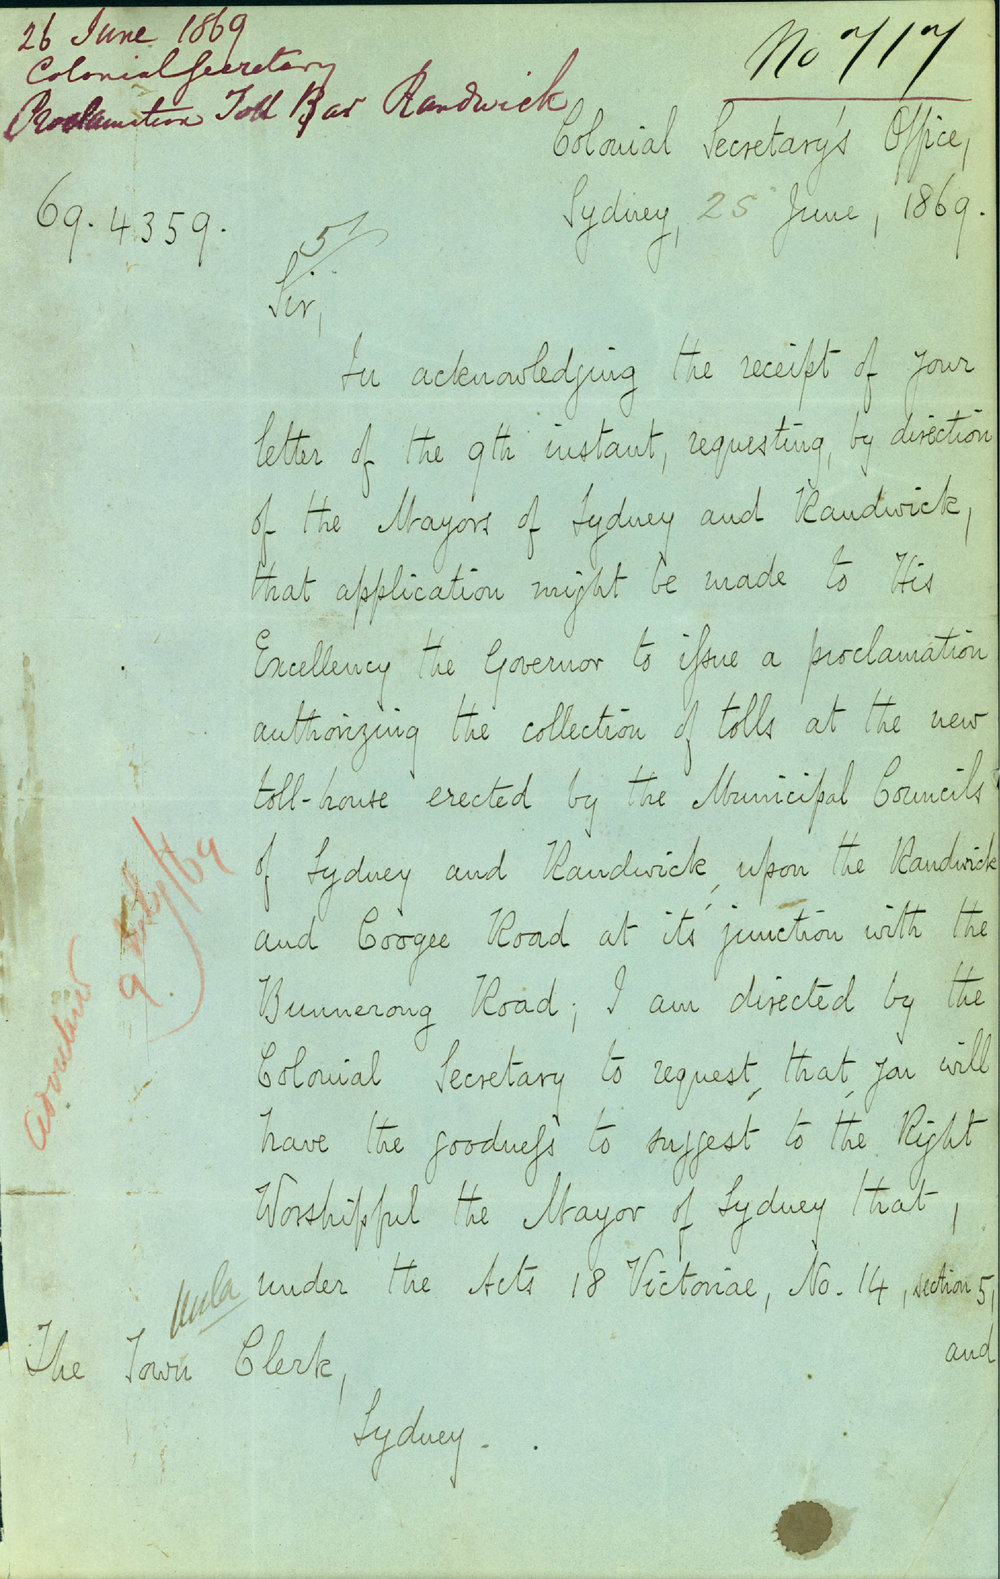 26 June 1869
Colonial Secretary
Proclamation Toll Bar Randwick
No 717
Colonial Secretary's Office,
Sydney, 25 June, 1869.
69.4359.
Sir,
In acknowledging the receipt of your
letter of the 9th instant, requesting, by direction
of the Mayors of Sydney and Randwick,
that application might be made to His
Excellency the Governor to issue a proclamation
authorizing the collection of tolls at the new
toll-house erected by the Municipal Councils
of Sydney and Randwick, upon the Randwick
and Coogee Road at its junction with the
Bunnerong Road; I am directed by the
Colonial Secretary to request, that, you will
have the goodness to suggest to the Right
Worshipful the Mayor of Sydney that,
under the Acts 18 Victoriae, No. 14, section 5,
and
The Town Clerk,
Sydney.
9 July/69